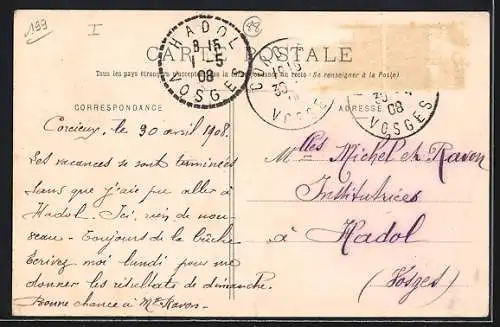 199
I
44
HADOL
8 15
1 -5
08
VOSGES
CARTE POSTALE
Tous les pays étrangers n'acceptent pas la correspondance au recto (Se renseigner à la Poste)
30
VOSGES
30
08
VOSGES
CORRESPONDANCE
ADRESSE
Corcieux, le 30 avril 1908.
Les vacances se sont terminées
sans que j'aie pu aller à
Hadol. Ici, rien de nou-
veau - Toujours de la bûche
Ecrivez moi lundi pour me
donner les résultats de dimanche.
Bonne chance à Mle Ravon.
Mlles Michel et Ravon
Institutrices
à Hadol
(Vosges)